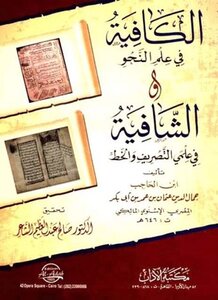 الكافية
في علم النحو
و
الشافية
في علمي التصريف والخط
تأليف
ابن الحاجب
جمال الدين عثمان بن عمر بن أبي بكر
المصري الإسنوي المالكي
ت: ٦٤٦ هـ
تحقيق
الدكتور صالح عبد العظيم الشاعر
مكتبة الآداب
42 Opera Square - Cairo